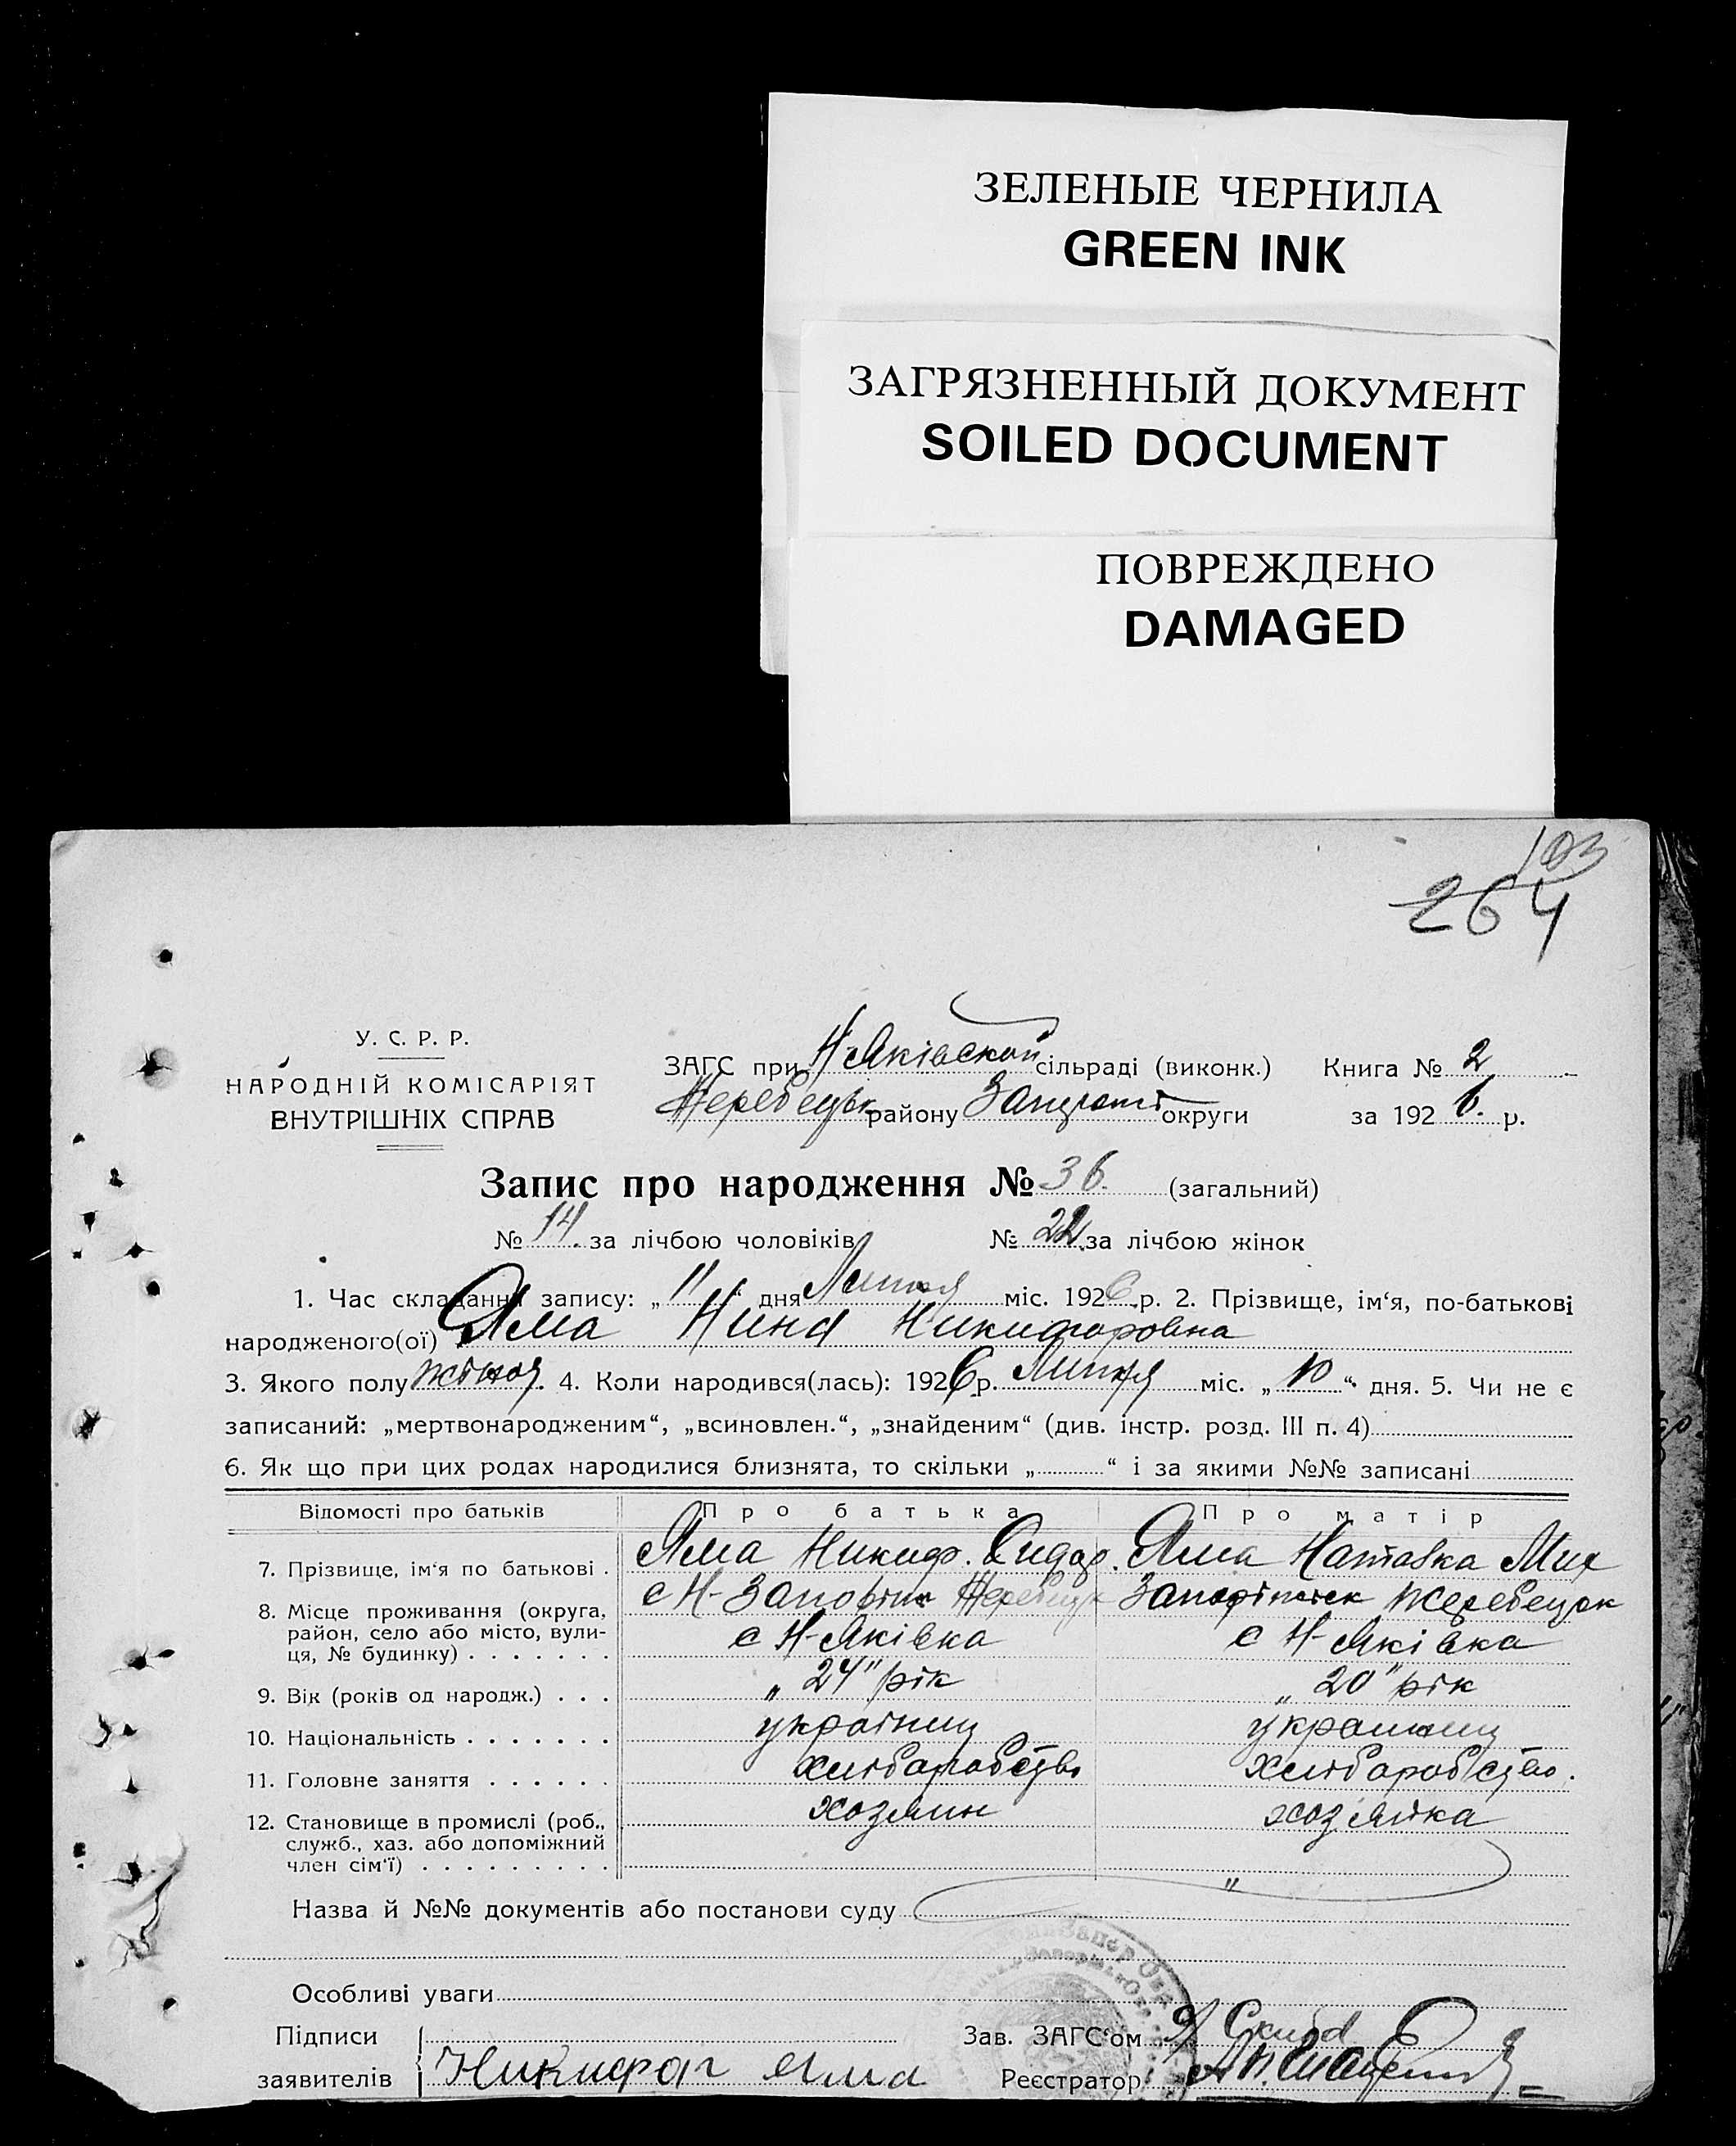 ЗЕЛЕНЫЕ ЧЕРНИЛА
GREEN INK
ЗАГРЯЗНЕННЫЙ ДОКУМЕНТ
SOILED DOCUMENT
ПОВРЕЖДЕНО
DAMAGED
103
264
У. С. Р. Р.
НАРОДНІЙ КОМІСАРІЯТ
ВНУТРІШНІХ СПРАВ
ЗАГС при Н Яківской сільраді (виконк.) Книга № 2
Жеребецьк району Запроті округи за 1926. р.
Запис про народження № 36. (загальний)
№ 14. за лічбою чоловіків № 22. за лічбою жінок
1. Час складання запису: „11“ дня Липня міс. 1926 р. 2. Прізвище, ім‘я, по-батькові
народженого(ої) Яма Нина Никифоровна
3. Якого полу жіноя. 4. Коли народився(лась): 1926 р. Липня міс. „10“ дня. 5. Чи не є
записаний: „мертвонародженим“, „всиновлен.“, „знайденим“ (див. інстр. розд. III п. 4)
6. Як що при цих родах народилися близнята, то скільки „ “ і за якими №№ записані
Відомості про батьків Про батька Про матір
7. Прізвище, ім‘я по батькові . Яма Никиф. Сидор. Яма Наталка Мих
8. Місце проживання (округа, Жеребецьк Жеребецьк
район, село або місто, вули- с Н-Яківка с Н-Яківка
ця, № будинку) . . . . . . .
9. Вік (років од народж.) . . . „24” рік „20” рік
10. Національність . . . . . . . українц українц
11. Головне заняття . . . . . . хліборобство хліборобство.
12. Становище в промислі (роб., хозяин хозяйка
служб., хаз. або допоміжний
член сім‘ї) . . . . . . . . . „
Назва й №№ документів або постанови суду
Особливі уваги
Підписи Зав. ЗАГС‘ом
заявителів Никифор Яма Реєстратор